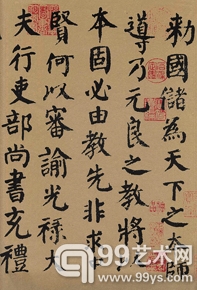 勅國儲為天下之本師
導乃元良之教將以
本固必由教先非求
賢何以審諭光祿大
夫行吏部尚書充禮
99艺术网
www.99ys.com